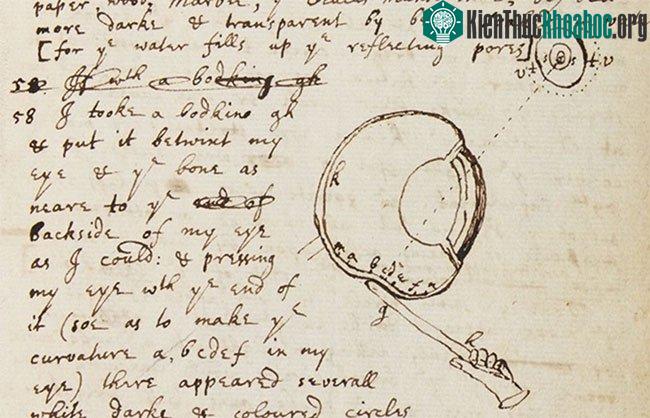 paper, wood, Marble, ye
KienThucKhoahoc.org
more darke & transparent by
[for ye water fills up ye reflecting pores]
58 I tooke a bodkine gh
& put it betwixt my
eye & ye bone as
neare to ye end of
backside of my eye
as I could: & pressing
my eye wth ye end of
it (soe as to make ye
curvature a, bcdef in my
eye) there appeared severall
white darke & coloured circles
v t s s t v
h
m a b c d e f n
g
h